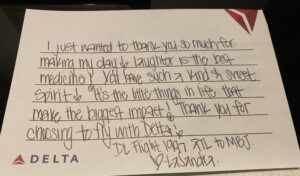 I just wanted to thank you so much for
making my day & laughter is the best
medicine! You have such a kind & sweet
spirit & "It's the little things in life that
make the biggest impact! Thank you for
choosing to fly with Delta!
DL Flight 1997 ATL to MBJ
Lasandra
DELTA